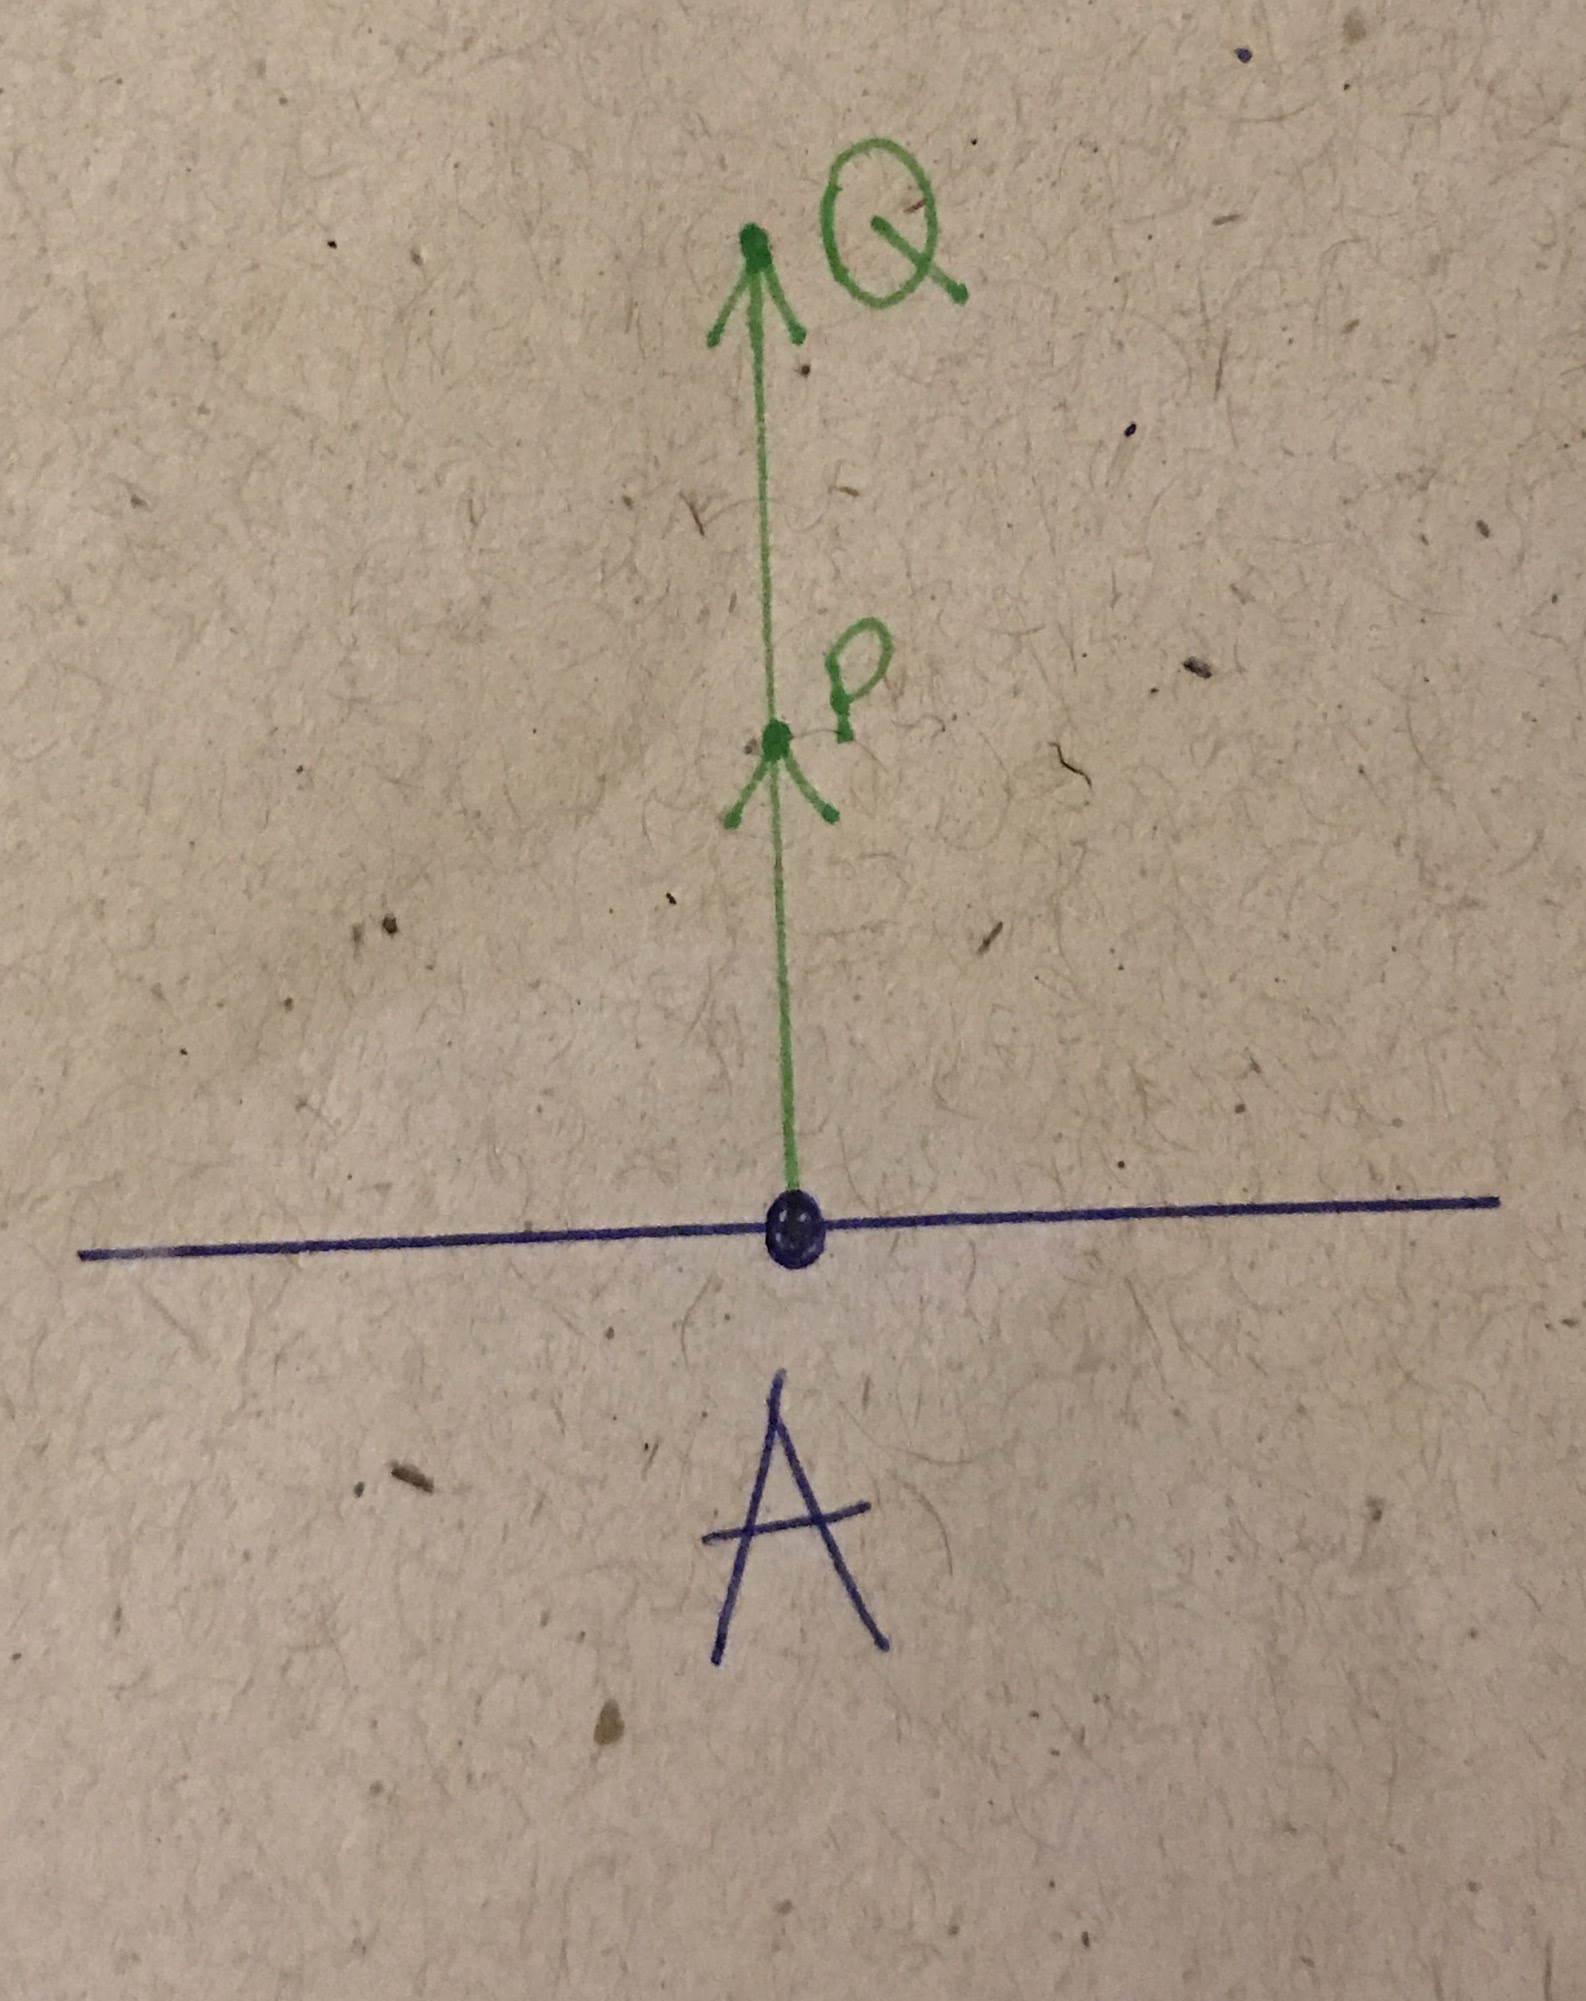 Q
P
A